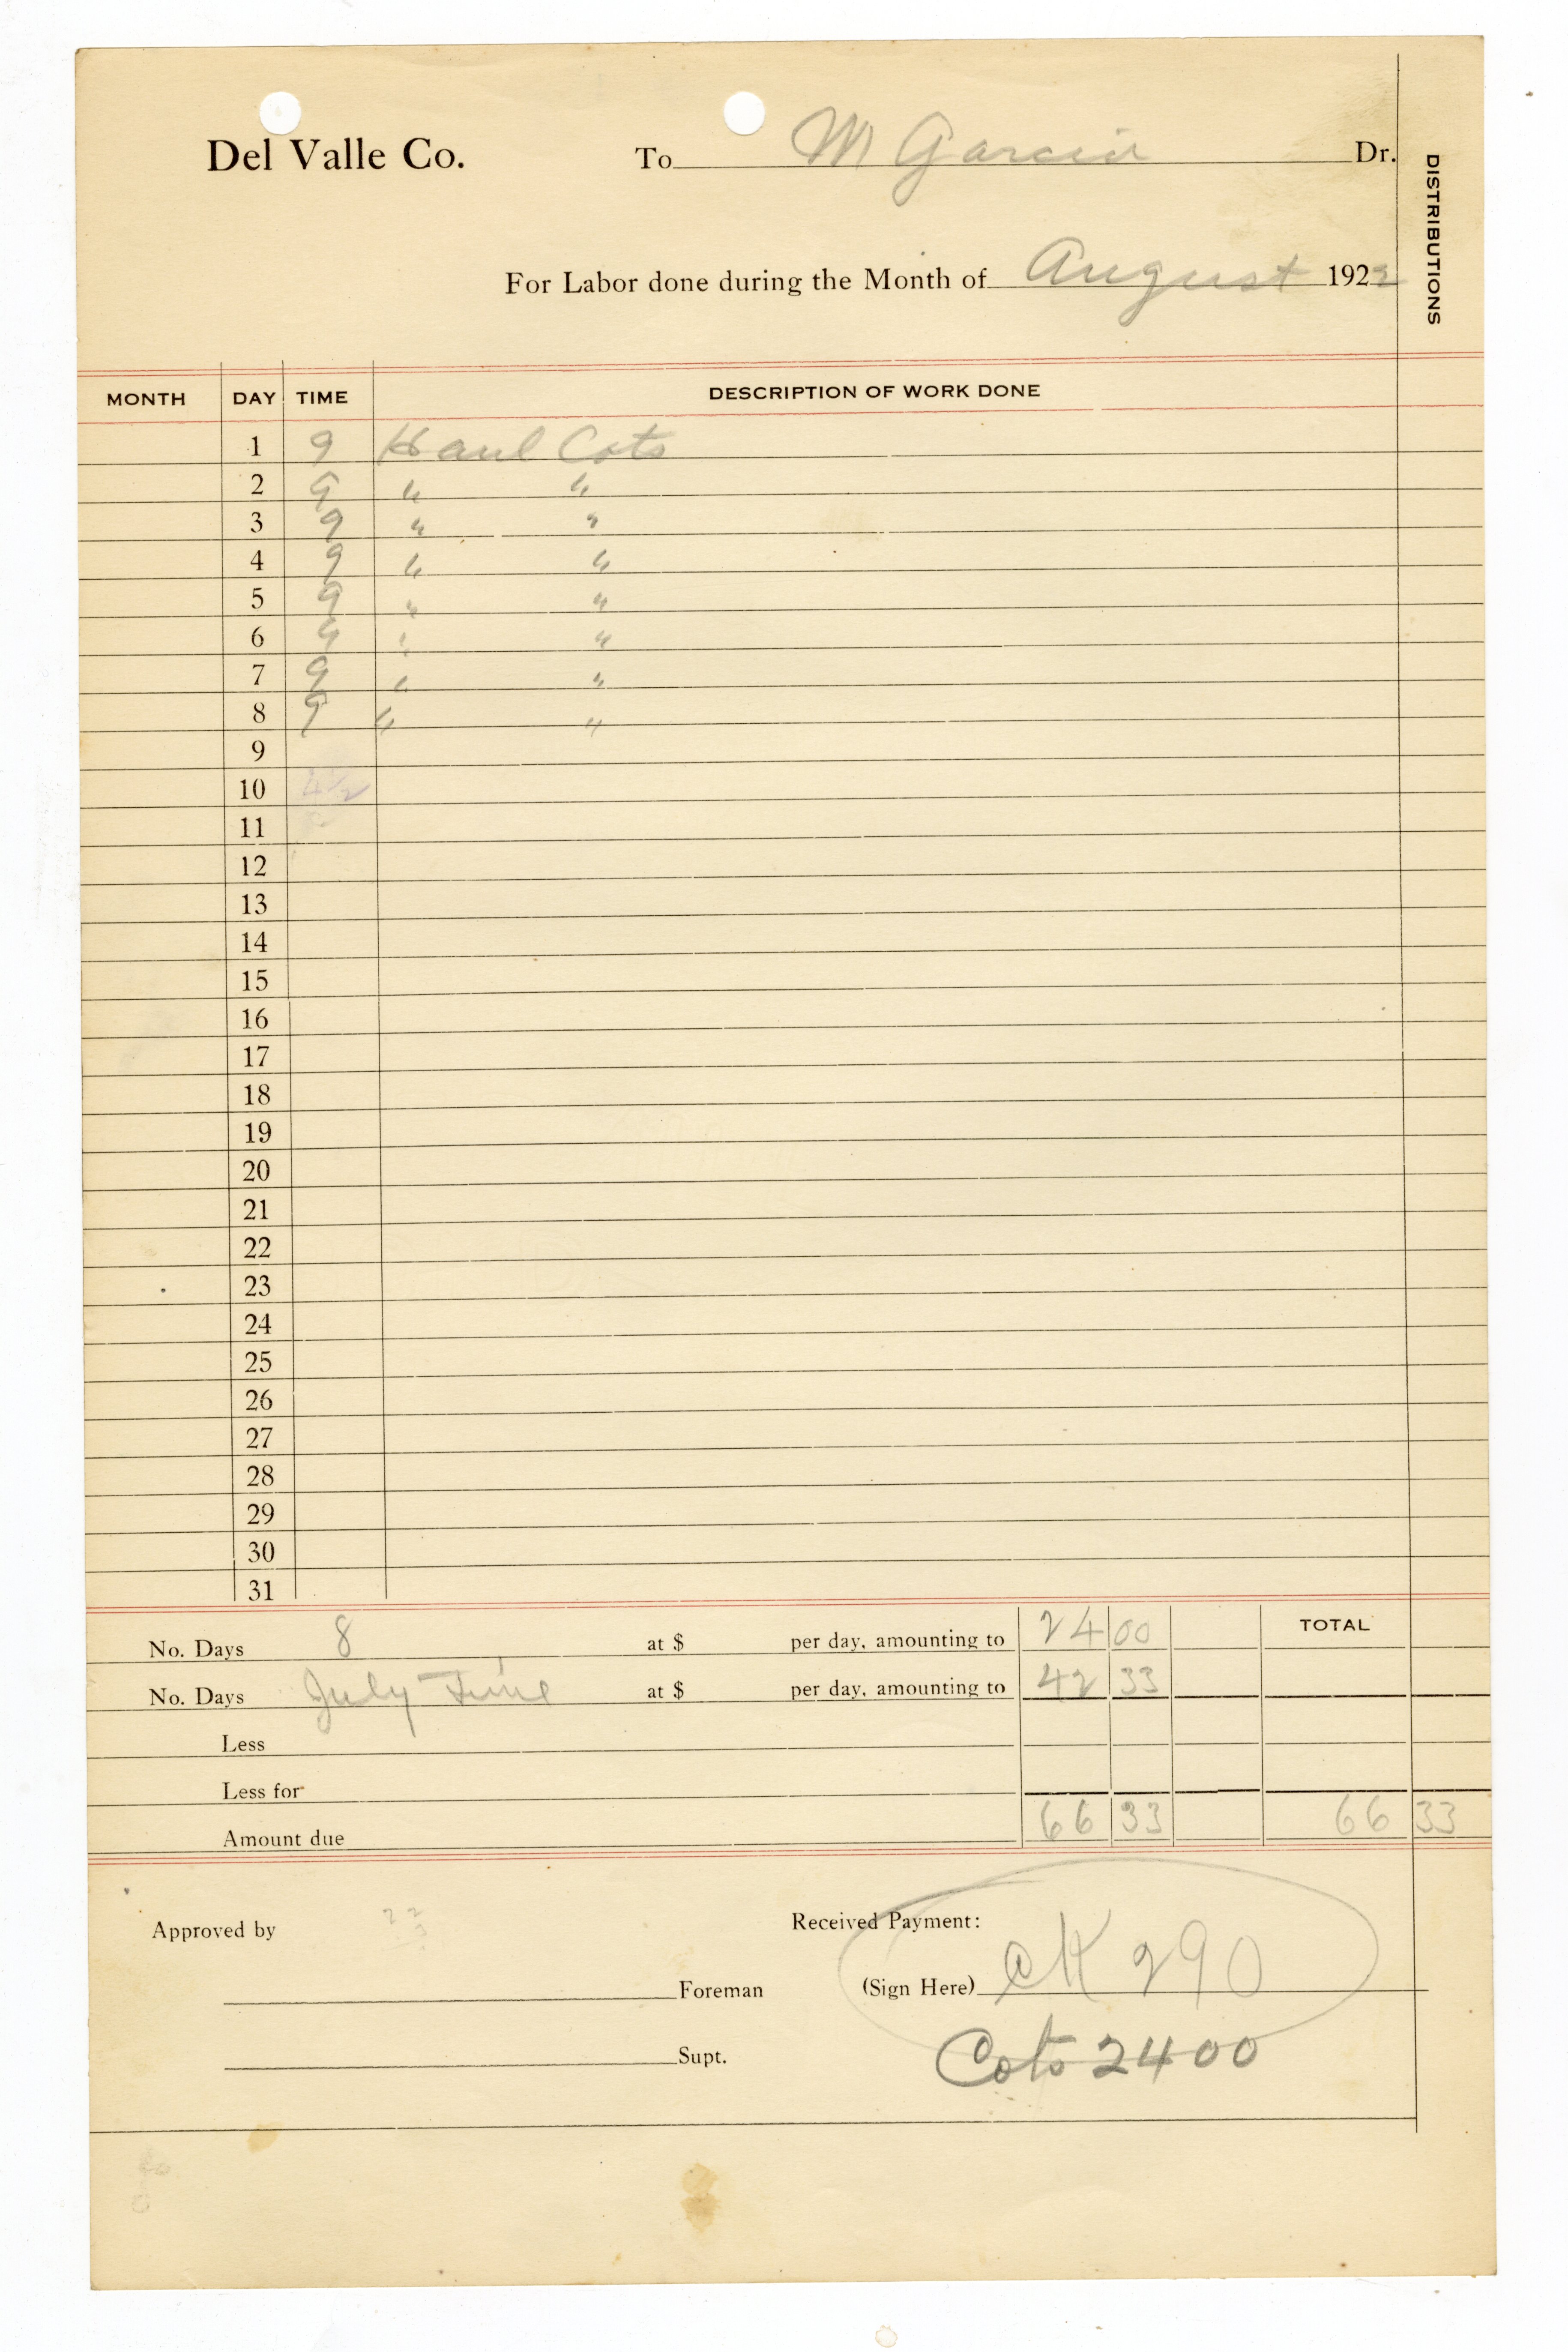 Del Valle Co. To M Garcia Dr.
DISTRIBUTIONS
For Labor done during the Month of August 1922
MONTH DAY TIME DESCRIPTION OF WORK DONE
1 9 Haul Cots
2 9 " "
3 9 " "
4 9 " "
5 9 " "
6 9 " "
7 9 " "
8 9 " "
9
10 4 1/2
11
12
13
14
15
16
17
18
19
20
21
22
23
24
25
26
27
28
29
30
31
No. Days 8 at $ per day, amounting to 24 00 TOTAL
No. Days July Time at $ per day, amounting to 42 33
Less
Less for
Amount due 66 33 66 33
Approved by
Received Payment:
Foreman (Sign Here) CK 290
Supt. Cots 2400